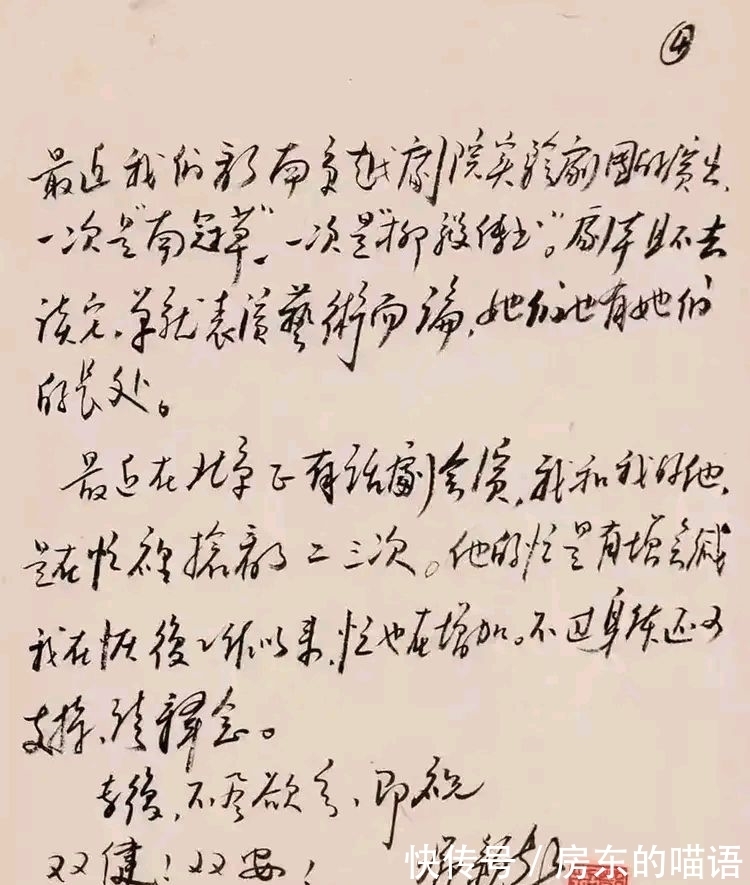 ④
最近我们看南京越劇院实验劇團的演出,
一次是"南冠草"、一次是"柳毅傳书"。劇本且不去
谈它,单就表演藝術而論,她们也有她们
的长处。
最近在北京正有话劇会演,我和我的他,
是在忙裡搶看了二三次。他的忙是有增無减
我在恢復工作以来,忙也在增加。不过身体还可
支持,请釋念。
专復,不尽欲言,即祝
双健!双安!
快传号/房东的喵语